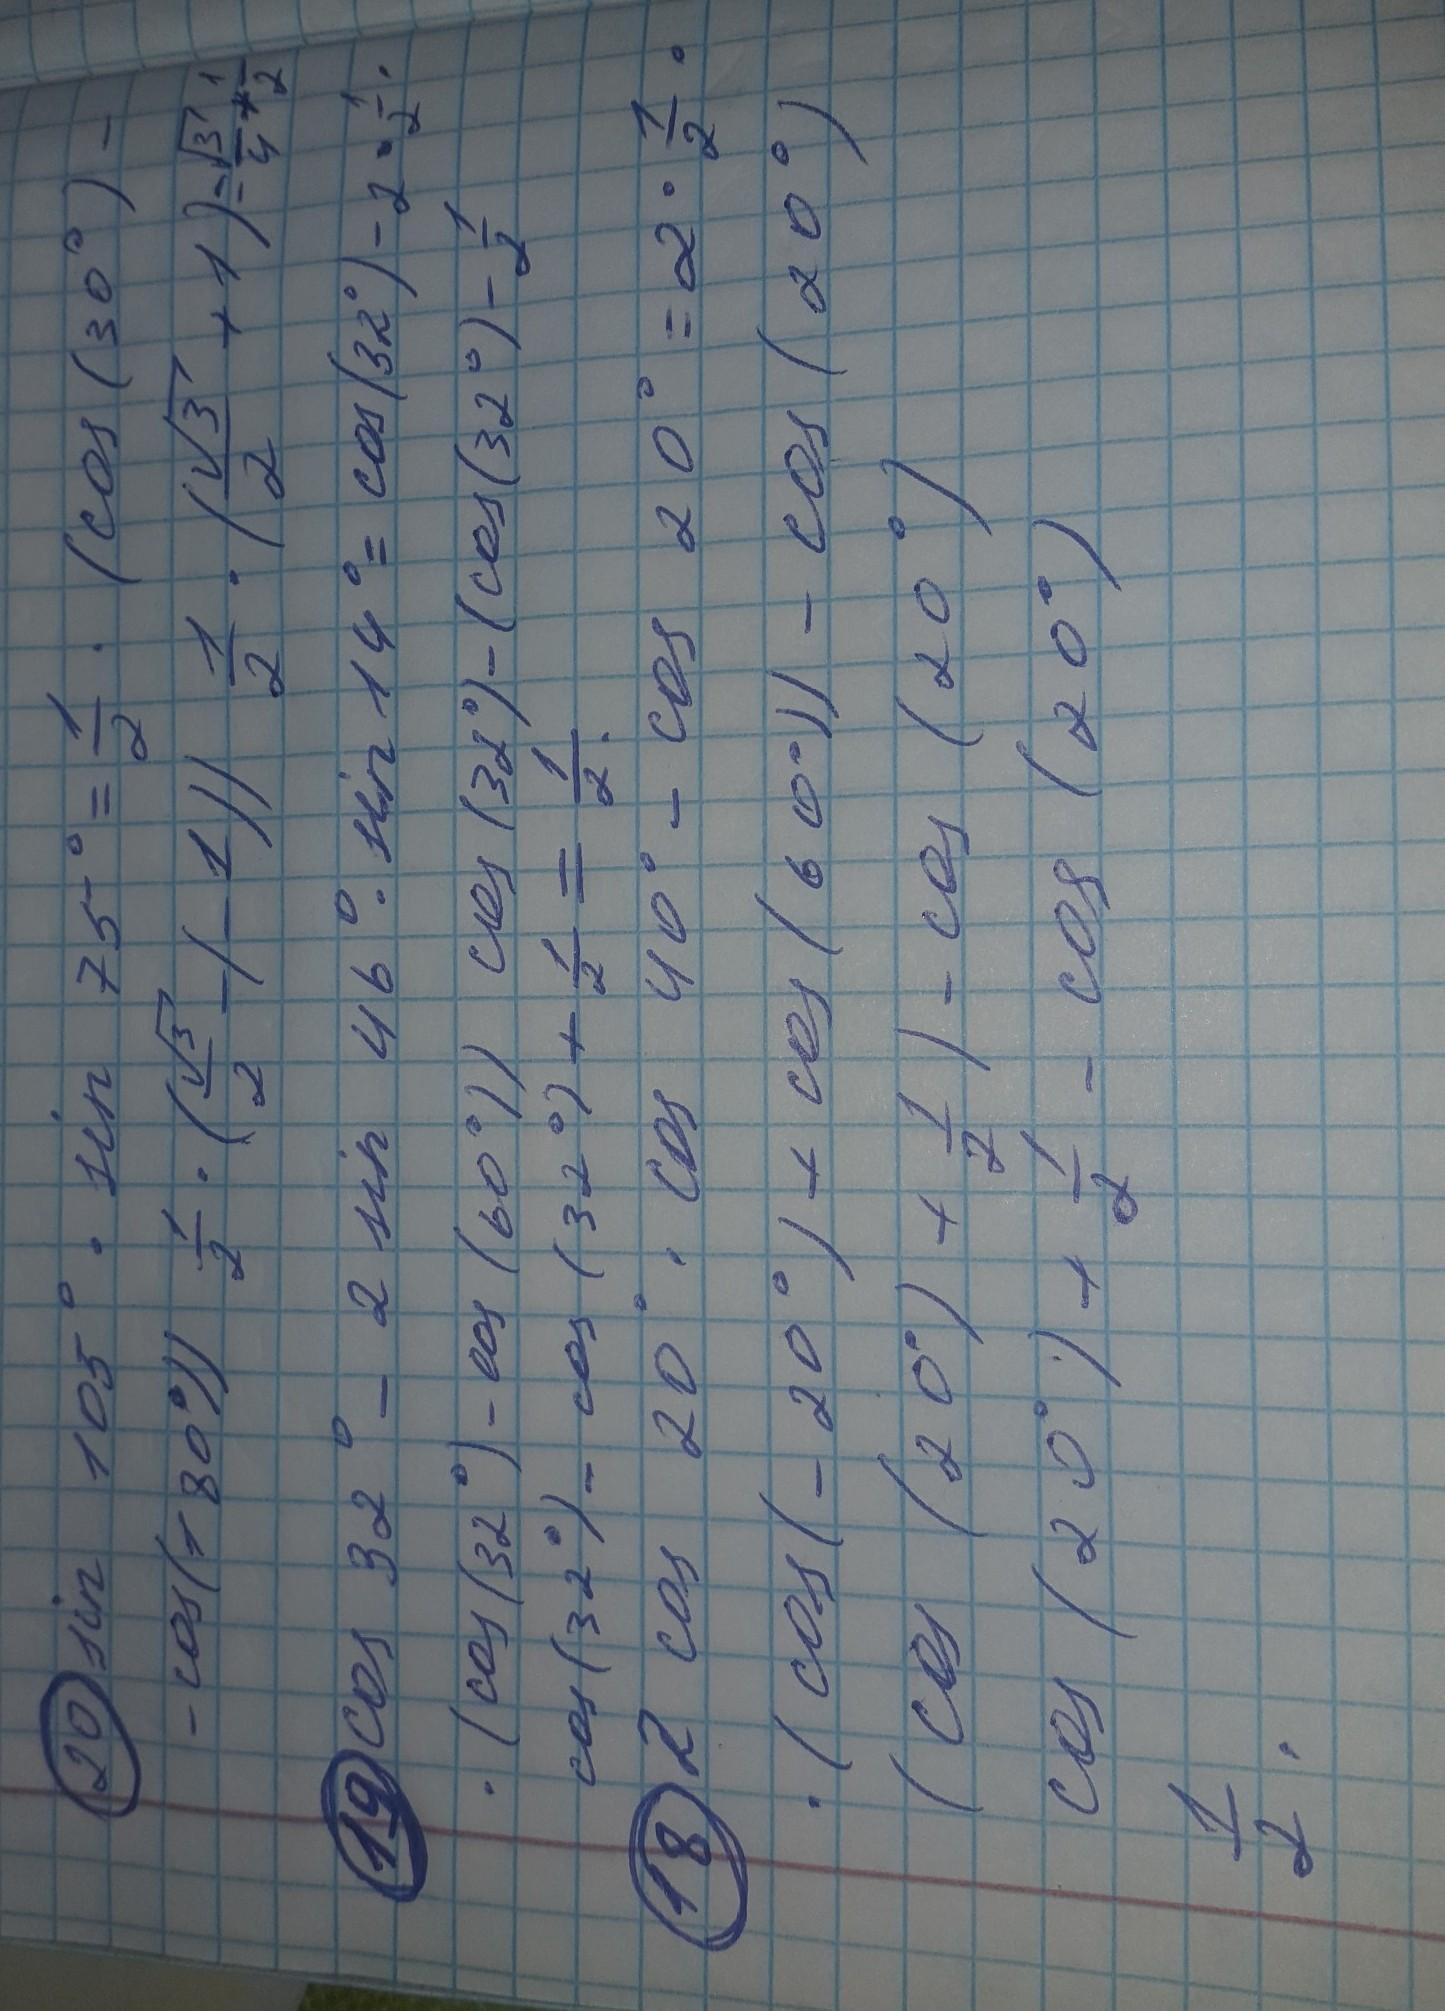 20 sin 105° · sin 75° = 1/2 · (cos(30°) -
- cos(180°)) 1/2 · (√3/2 - (-1)) 1/2 · (√3/2 + 1) = √3/4 + 1/2
19 cos 32° - 2 sin 46° · sin 14° = cos(32°) - 2 · 1/2 ·
· (cos(32°) - cos(60°)) cos(32°) - (cos(32°) - 1/2
cos(32°) - cos(32°) + 1/2 = 1/2.
18 2 cos 20° · cos 40° - cos 20° = 2 · 1/2 ·
· (cos(-20°) + cos(60°)) - cos(20°)
(cos (20°) + 1/2) - cos (20°)
cos (20°) + 1/2 - cos (20°)
1/2.